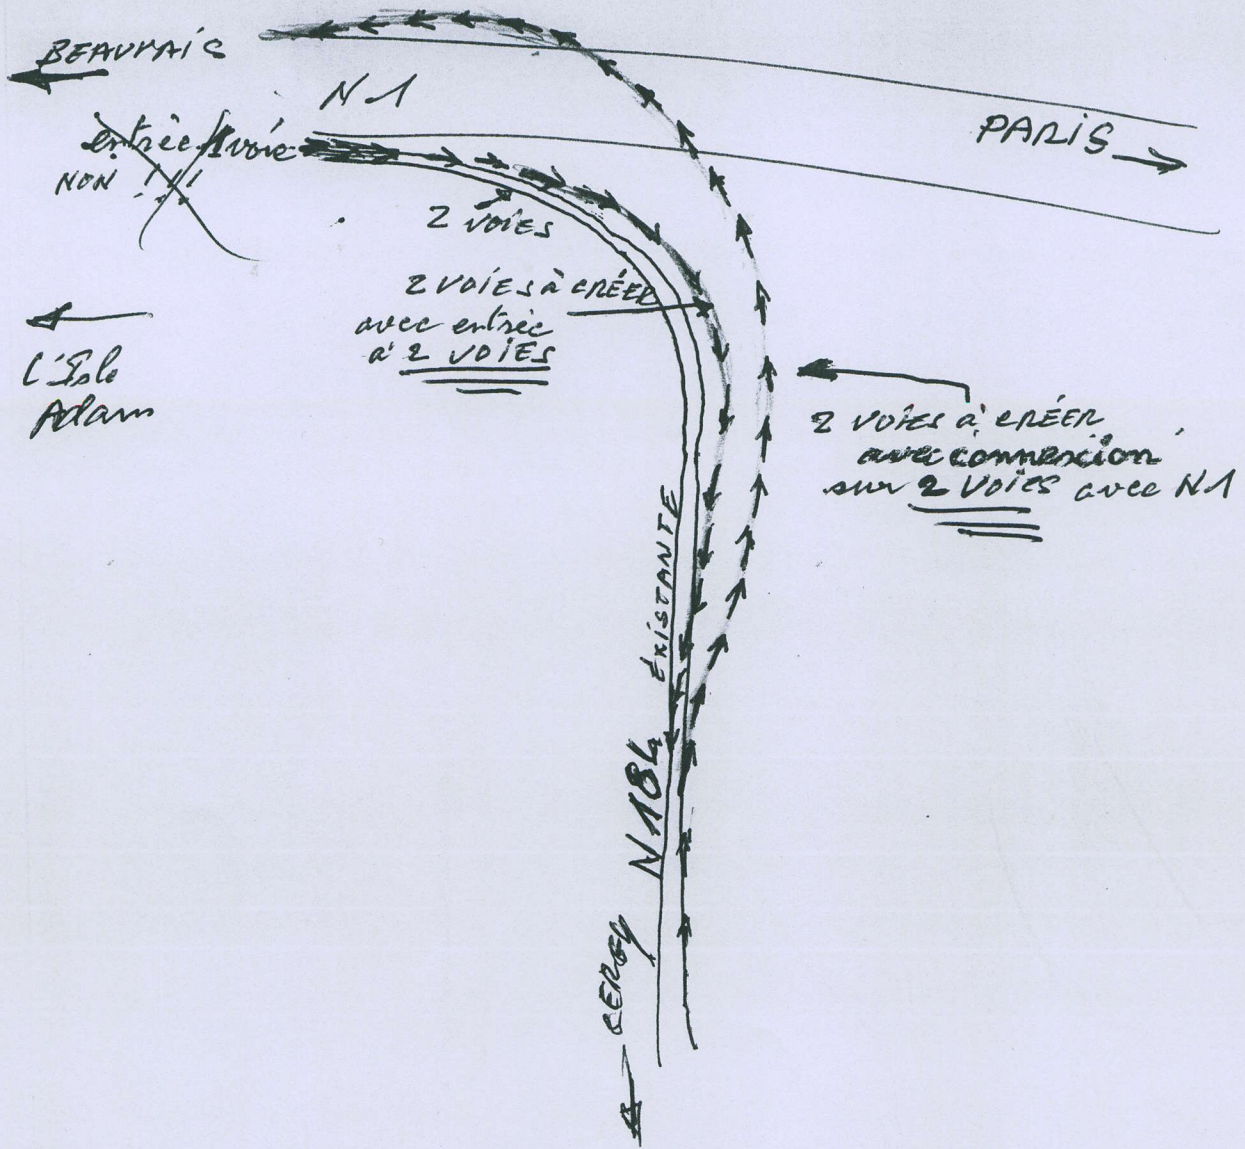 BEAUVAIS
N1
PARIS
entrée 1 voie
NON !!!
2 VOIES
2 VOIES à CRÉER
avec entrée
à 2 VOIES
L'Isle
Adam
2 VOIES à CRÉER
avec connexion
sur 2 VOIES avec N1
N184 EXISTANTE
CERGY